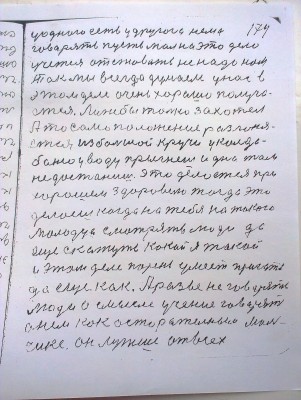 174
у одного есть у другого нема
говорять пусть мол на это дело
учится отстовать не надо нам
Так мы всегда думаем у нас в
этом деле очень хорошо получа-
ется.
А то само положение разлоня-
ется, из большой кручи у колдо-
баню у воду прыгнеш и дна там
не достаниш. Это делается при
хорошем здоровью тогда это
делаеш когда на тебя на такого
молодца смотрять люди да
еще скажуть какой я такой
в этом деле парень умеет прыгать
да еще как. А разве не говорять
люди о смыслe учение говорять
о нем как о старательным маль-
чике. он лучше от всех